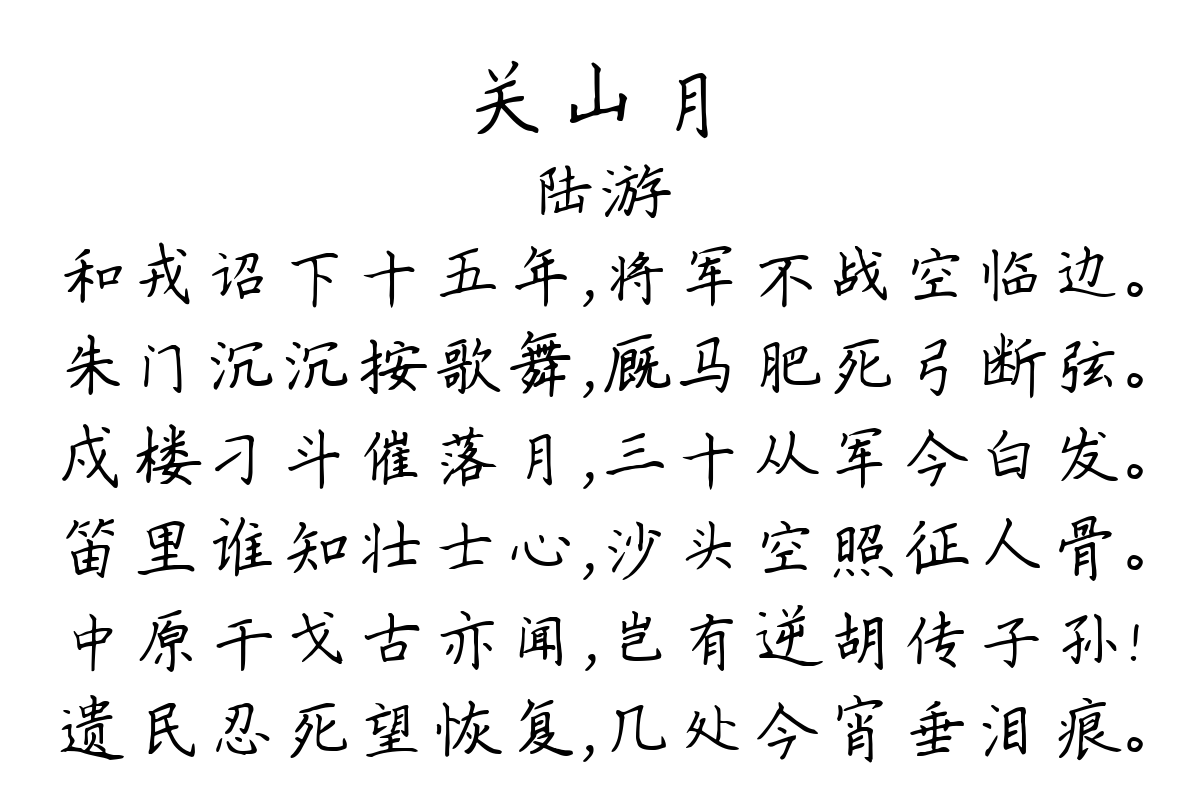 关山月
陆游
和戎诏下十五年,将军不战空临边。
朱门沉沉按歌舞,厩马肥死弓断弦。
戍楼刁斗催落月,三十从军今白发。
笛里谁知壮士心,沙头空照征人骨。
中原干戈古亦闻,岂有逆胡传子孙!
遗民忍死望恢复,几处今宵垂泪痕。